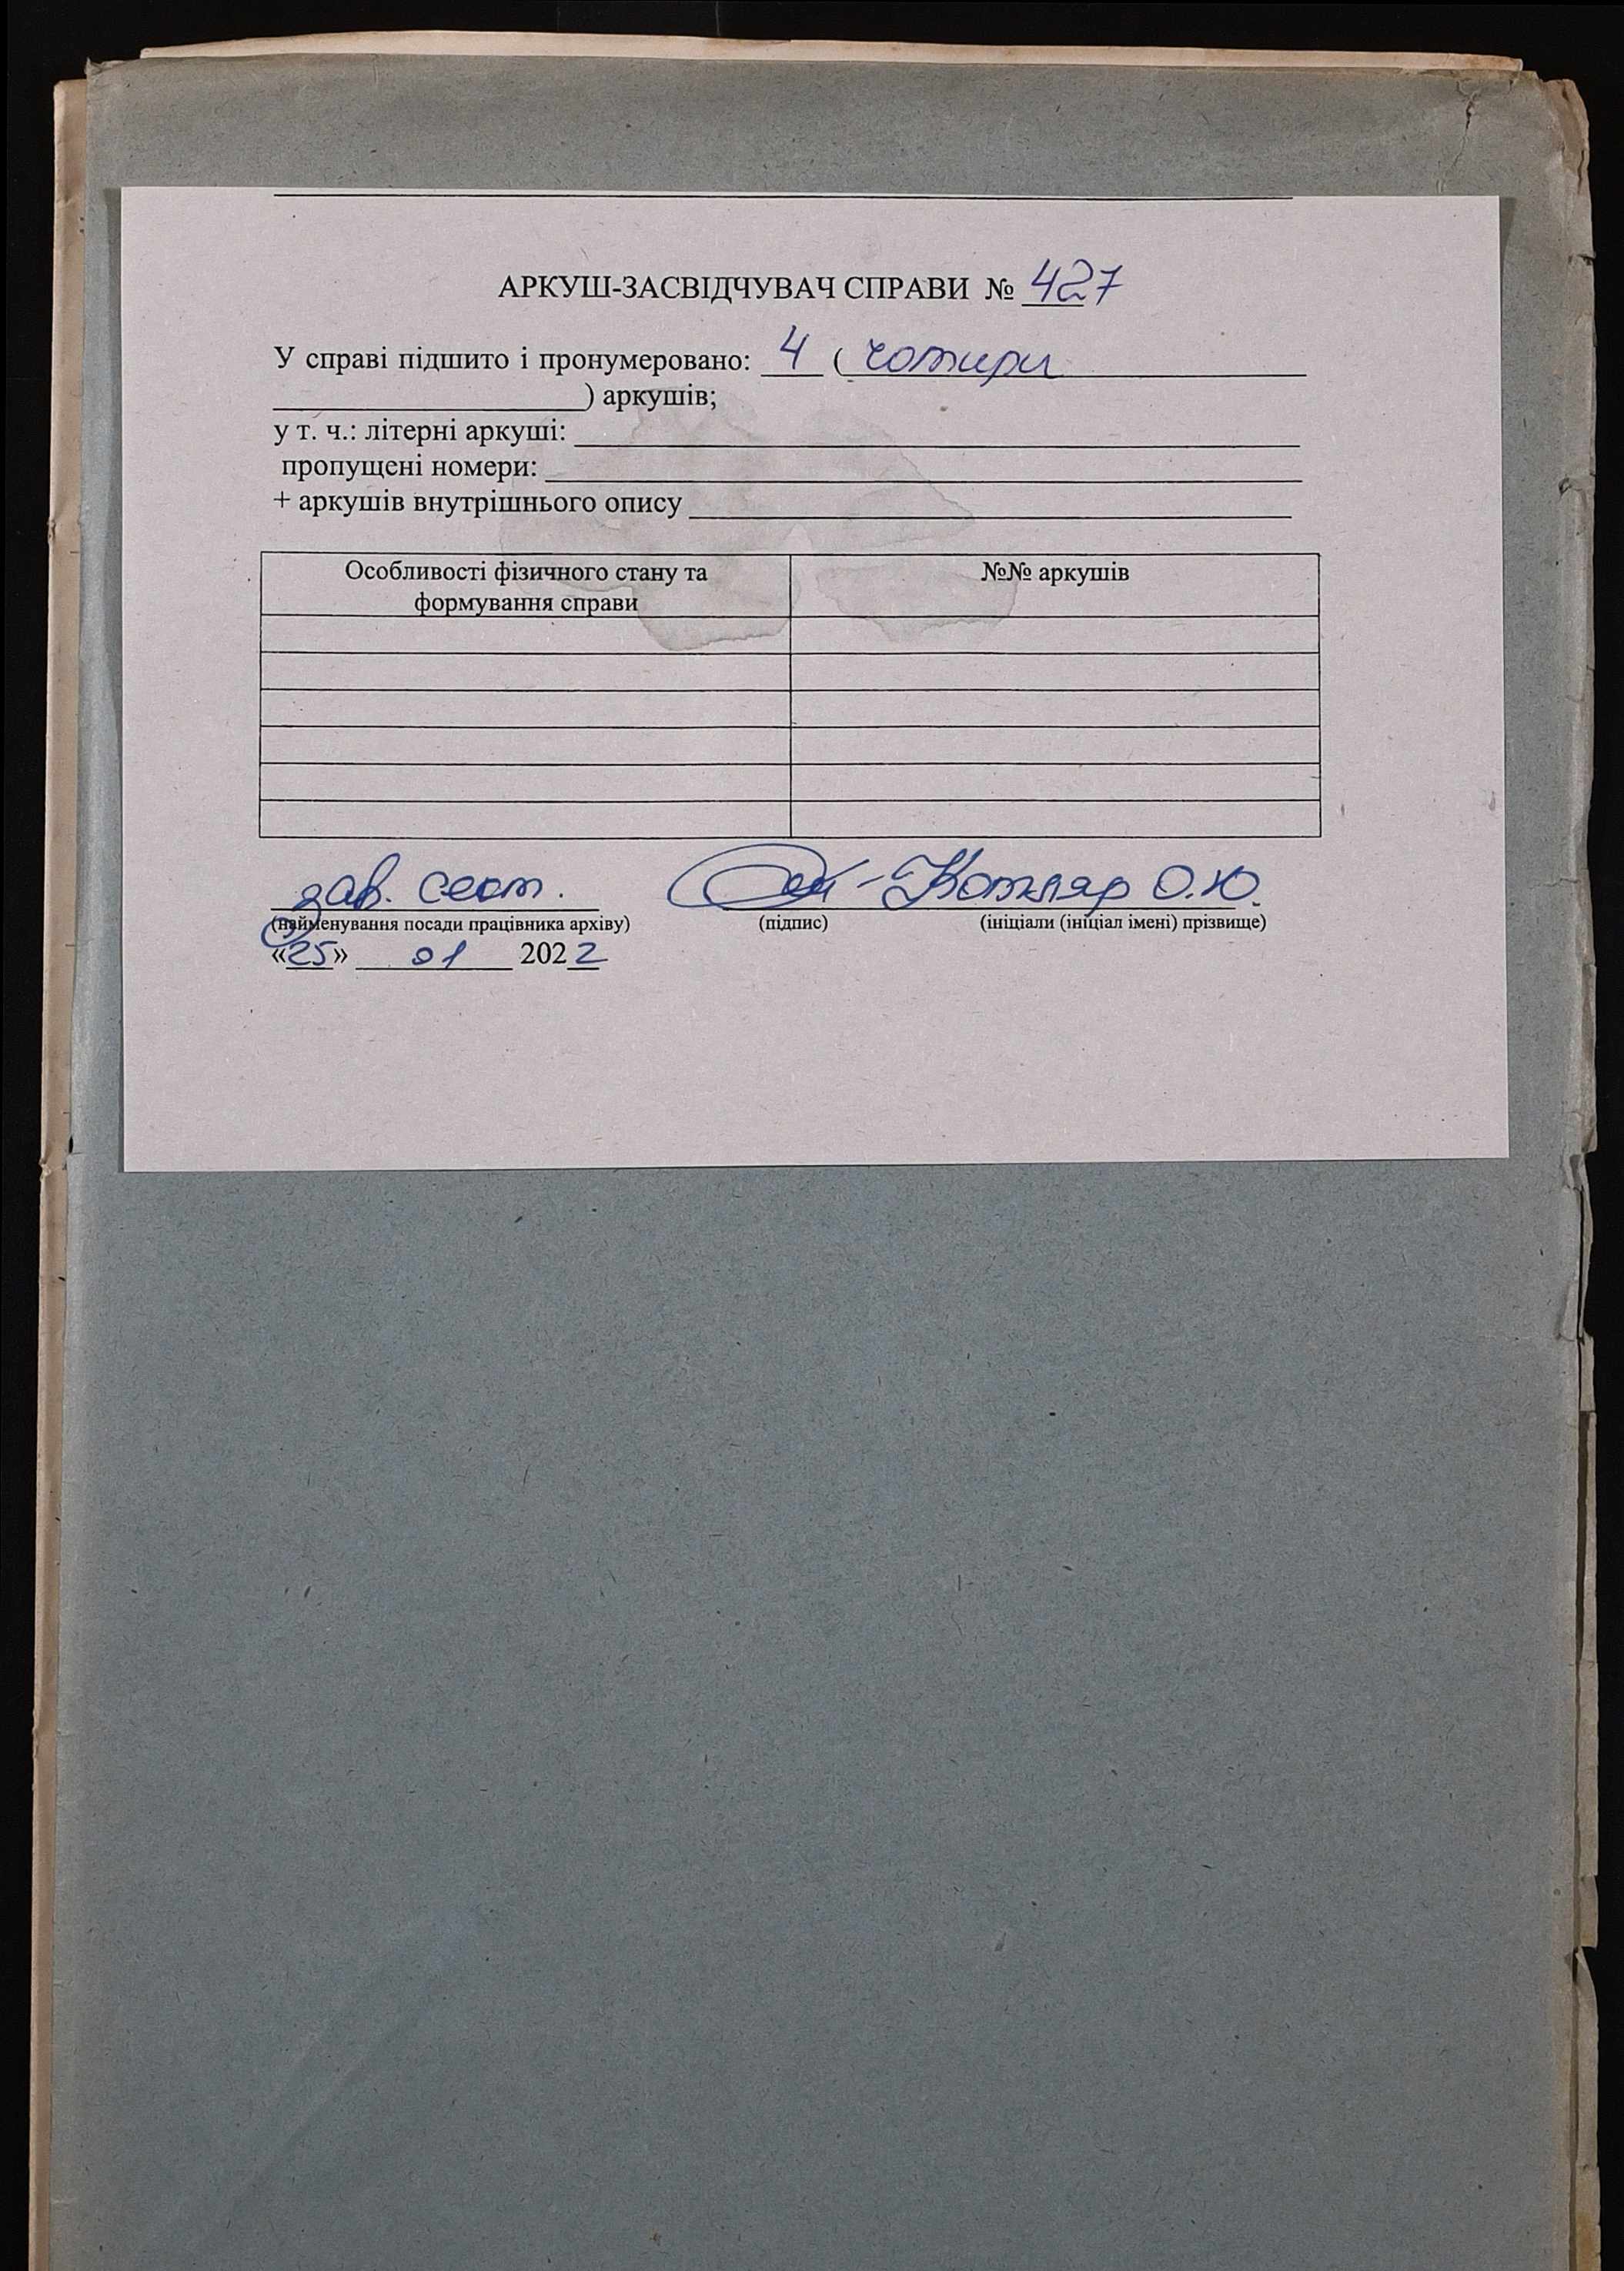 АРКУШ-ЗАСВІДЧУВАЧ СПРАВИ № 427
У справі підшито і пронумеровано: 4 ( чотири
) аркушів;
у т. ч.: літерні аркуші:
пропущені номери:
+ аркушів внутрішнього опису
Особливості фізичного стану та №№ аркушів
формування справи
зав. сект. Котляр О.Ю.
(найменування посади працівника архіву) (підпис) (ініціали (ініціал імені) прізвище)
«25» 01 2022